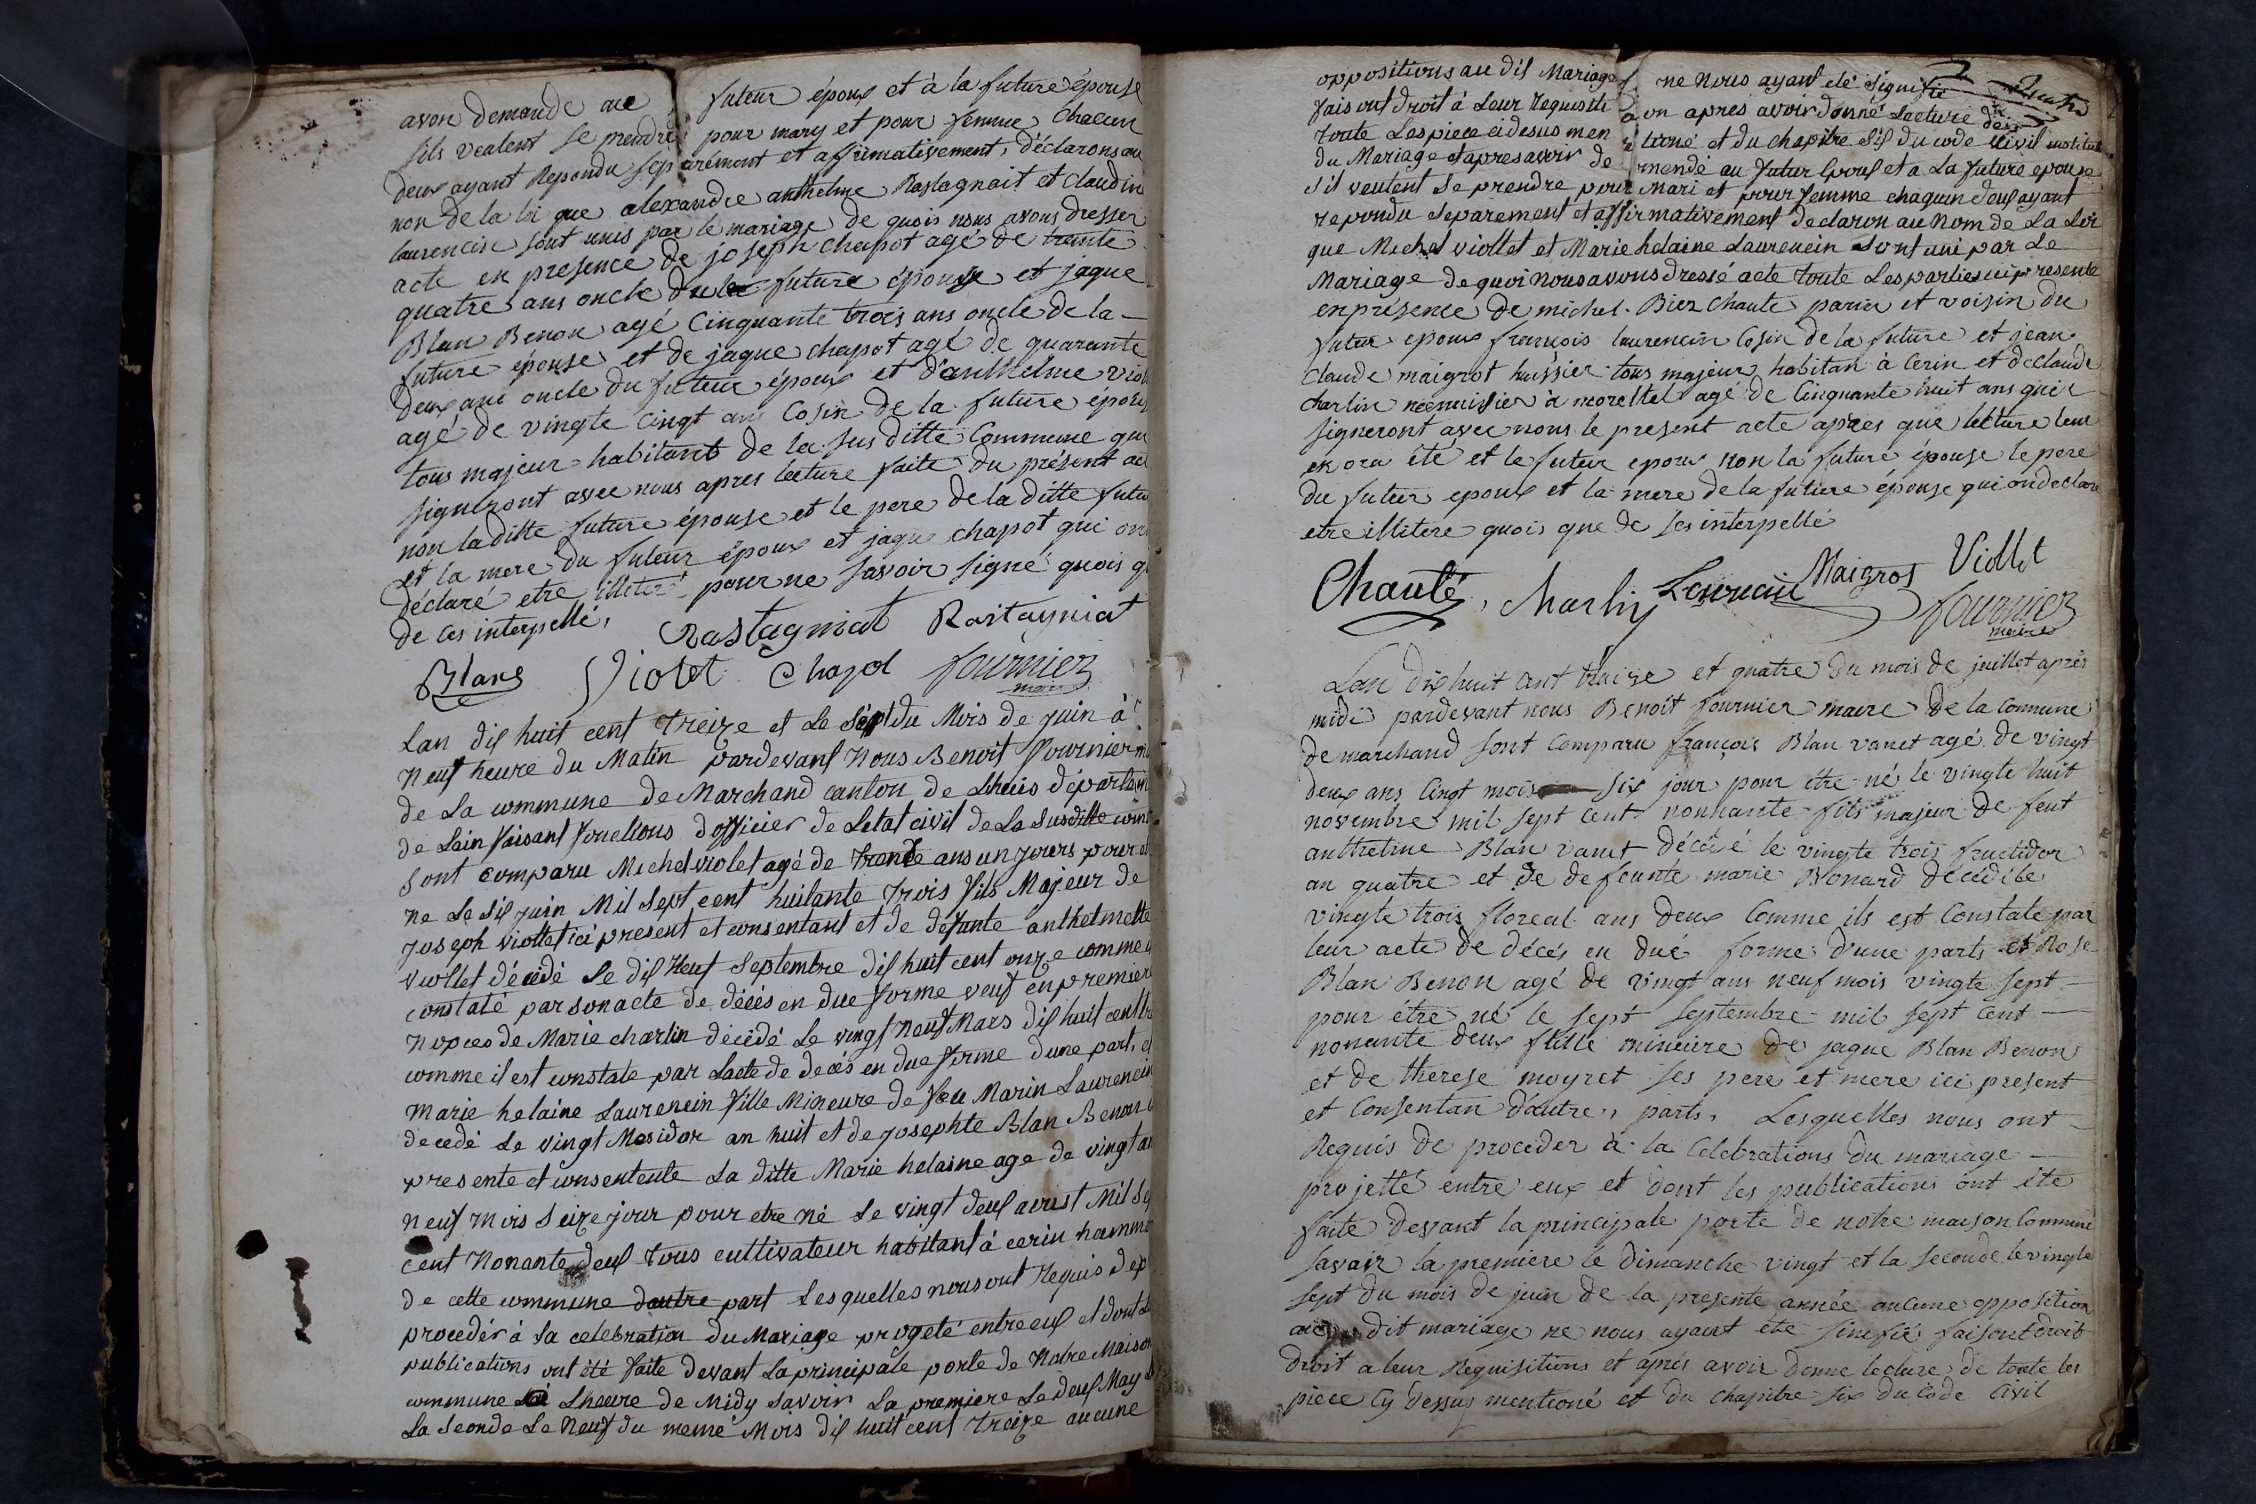 avon demande au futeur époux et à la future épouse
sils veulent se prendre pour mary et pour femme chacun
deux ayant Repondu séparémant et affirmativement, déclarons au
non de la loi que alexandre anthelme Rastagnait et Claudin
laurencin sont unis par le mariage de quois nous avons dresser
acte en presence de joseph chapot agé de trante
quatre ans oncle du la future épouse et jaque
Blan Benon agé Cinquante trois ans oncle de la
future épouse et de jaque chapot agé de quarante
deux ans oncle du futeur époux et d'anthelme viol
agé de vingte Cinqt ans Cosin de la future épou
tous majeur habitant de la sus ditte Commune qui
signeront avec nous apres lecture faite du présent ac
non laditte future épouse et le pere de la ditte futu
et la mere du futeur époux et jaque chapot qui on
déclaré etre illiteré pour ne savoir signé quois q
de ces interpellé,
Rastagniat Rastayniat
Blanc Violet Chapol fournier
maire
Lan dix huit cent treize et Le Sept du Mois de juin à
Neuf heure du Matin pardevant Nous Benoit fournier m
de La commune de Marchand canton de Lhuis départem
de Lain faisant fonctions d'officier de Letat civil de La susditte com
sont comparu Michel violet agé de trente ans un jours pour et
ne Le six juin Mil Sept cent huitante trois fils Majeur de
joseph viollet ici présent et consentant et de defunte anthelmette
viollet décédé Le dix Neuf Septembre dix huit cent onze comme
constaté par son acte de décés en due forme veuf en premiere
Nopces de Marie charlin décédé Le vingt Neuf Mars dix huit cent
comme il est constate par Lacte de decés en due forme dune part, et
Marie helaine Laurencin fille Mineure de feu Marin Laurencin
decedé Le vingt Mesidor an huit et de josephte Blan Benon
presente et consentente La ditte Marie helaine age de vingt an
Neuf mois Seize jour pour etre né Le vingt deux aoust Mil Se
Cent Nonante deux tous cultivateur habitant à cerin hammo
de cette commune dautre part Lesquelles nous ont Requis de p
procedér à La celebration du Mariage progeté entre eux et dont Le
publications ont été faite devant La principale porte de Notre Maison
commune à Lheure de Midy Savoir La premiere Le deux May
La Seonde Le Neuf du meme Mois dix huit cent treize aucune
oppositions au dit Mariage ne Nous ayant été signifié
faisont droit à Leur Requisiti on apres avoir donné Lecture de
toute Les piece ci desus men tioné et du chapitre six du code Civil institulé
du Mariage et apres avoir de mendé au futur Epoux et a La future epouse
sil veulent se prendre pour Mari et pour femme chaqun deux ayant
repondu Separement et affirmativement declaron au Nom de La Loi
que Michel viollet et Marie helaine Laurencin Sont uni par Le
Mariage de quoi Nous avons dressé acte toute Les parties ici presente
en présence de michel Biez Chante parin et voisin du
futur epoux françois laurencin Cosin de la future et jean
Claude maigrot huissier tous majeur habitan à Cerin et de claude
charlin néemisier à morestel agé de Cinquante huit ans qui
signeront avec nous le present acte apres que lecture leur
en ora été et le futur epoux non la future épouse le pere
du futeur epoux et la mere de la future épouse qui on declaré
etre illitere quois que de ses interpellé
Chanté, Charlin Laurencin Maigrot Viollet
fournier
maire
Lan dix huit cent traize et quatre du mois de juillet aprés
midi pardevant nous Benoit fournier maire de la Commune
de marchand sont Comparu françois Blan vanet agé de vingt
deux ans Cinqt mois six jour pour être né le vingte huit
novembre mil sept cent nonnante fils majeur de feut
anthelme Blan vanet décédé le vingte trois fructidor
an quatre et de defeunte marie Bonard décédé le
vingte trois floreal ans deux Comme ils est Constate par
leur acte de décés en due forme d'une parts et Rose
Blan Benon agé de vingt ans neuf mois vingte sept
pour être né le sept septembre mil sept cent
nonante deux fille mineure de jaque Blan Benon
et de therese moyret ses pere et mere ici present
et Consentan d'autre, parts, Lesquelles nous ont
Requis de proceder à la Celebrations du mariage
projetté entre eux et dont les publications ont été
faite devant la principale porte de notre maison Commune
savoir la premiere le dimanche vingt et la seconde le vingte
sept du mois de juin de la presente année aucune opposition
au dit mariage ne nous ayant été sinifié faisont droit
droit a leur Requisitions et aprés avoir donne lecture de toute les
piece Cy dessus mentioné et du chapitre six du Code Civil